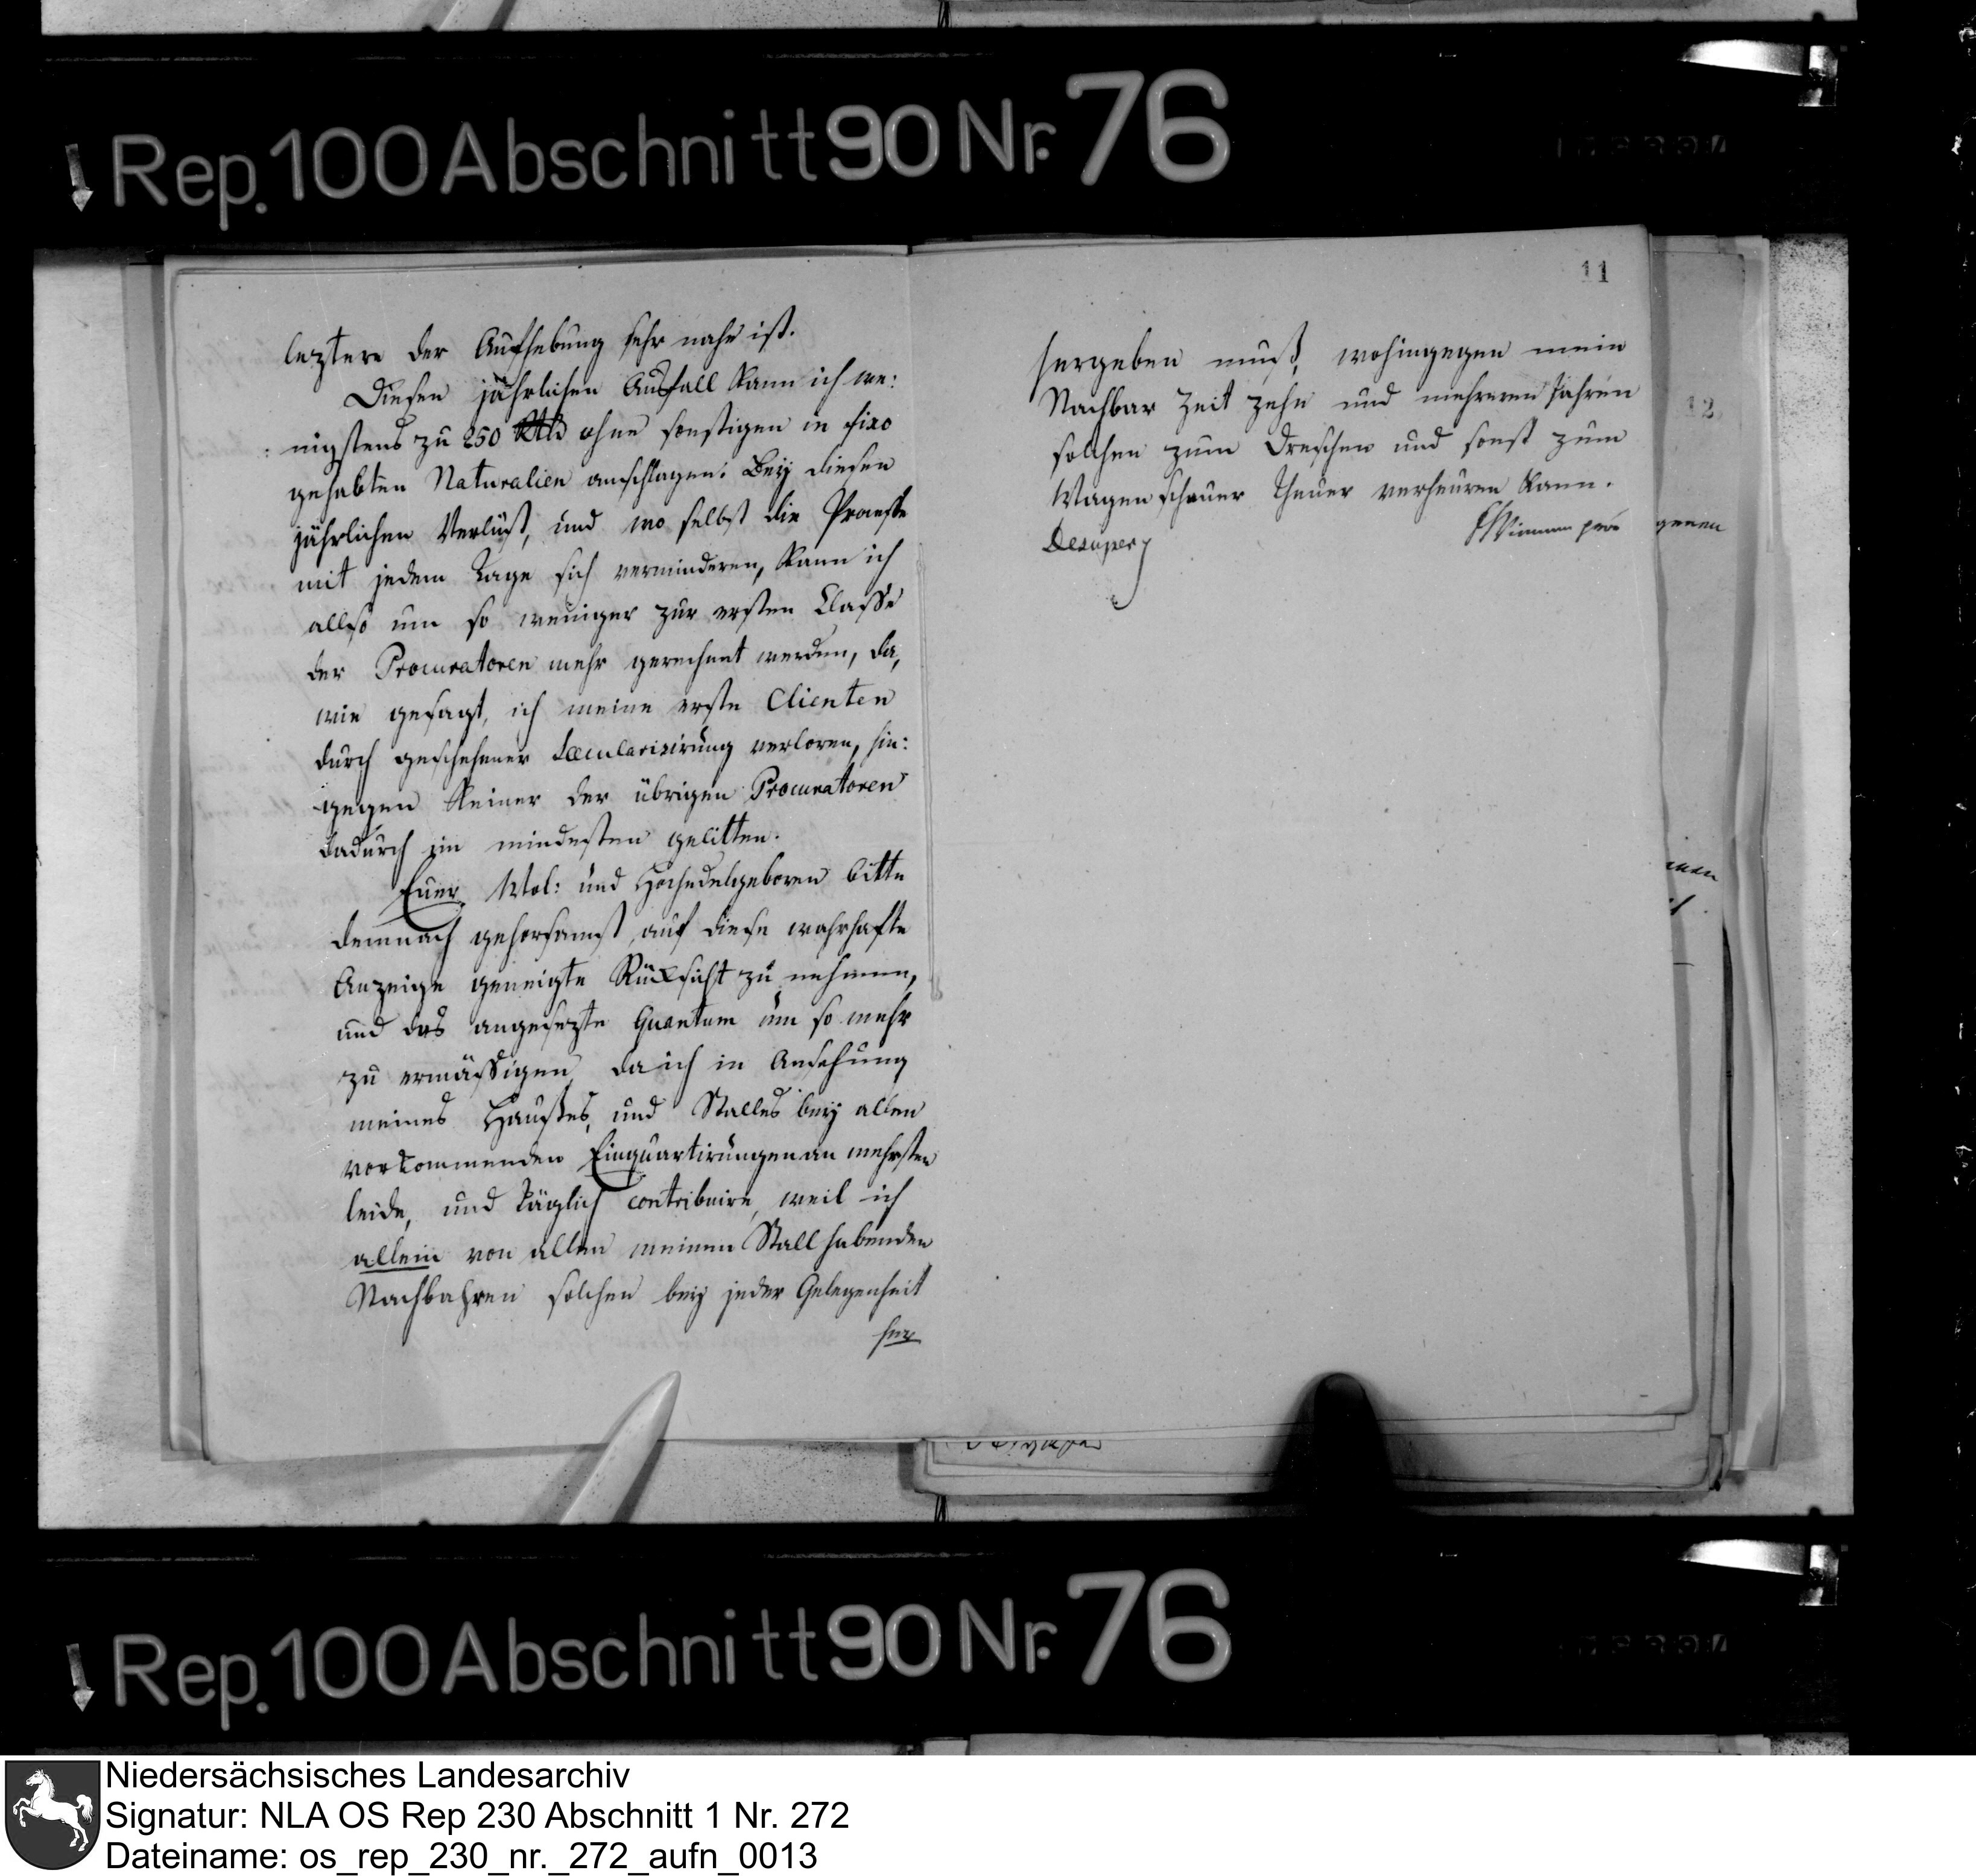 Rep. 100 Abschnitt 90 Nr. 76
leztere der Aufhebung sehr nahe ist.
Diesen jährlichen Ausfall kann ich we:
: nigstens zu 250 Rtlr ohne sonstigen in fixo
gehabten Naturalien anschlagen. Bey diesen
jährlichen Verlust, und wo selbst die
mit jedem Tage sich verminderen, kann ich
allso um so weniger zur ersten Classe
der Procuratoren mehr gerechnet werden, da,
wie gesagt, ich meine erste Clienten
durch geschehener Secularisirung verloren, hin:
gegen keiner der übrigen Procuratoren
dadurch im mindesten gelitten.
Euer Wol: und Hochedelgeboren bitte
demnach gehorsamst, auf diese wahrhafte
Anzeige geneigte Rücksicht zu nehmen,
und das angesezte Quantum um so mehr
zu ermässigen, da ich in Ansehung
meines Hauses, und Stalles bey allen
vorkommenden Einquartirungen am mehrsten
leide, und täglich contribuire, weil ich
allein von allen meinen Stall habenden
Nachbahren solchen bey jeder Gelegenheit
her
11
hergeben muß, wohingegen mein
Nachbar Zeit zehn und mehreren Jahren
solchen zum Dreschen und sonst zum
Wagenschauer theuer verheuren kann.
Desuper
12
genen
Rep. 100 Abschnitt 90 Nr. 76
Niedersächsisches Landesarchiv
Signatur: NLA OS Rep 230 Abschnitt 1 Nr. 272
Dateiname: os_rep_230_nr._272_aufn_0013